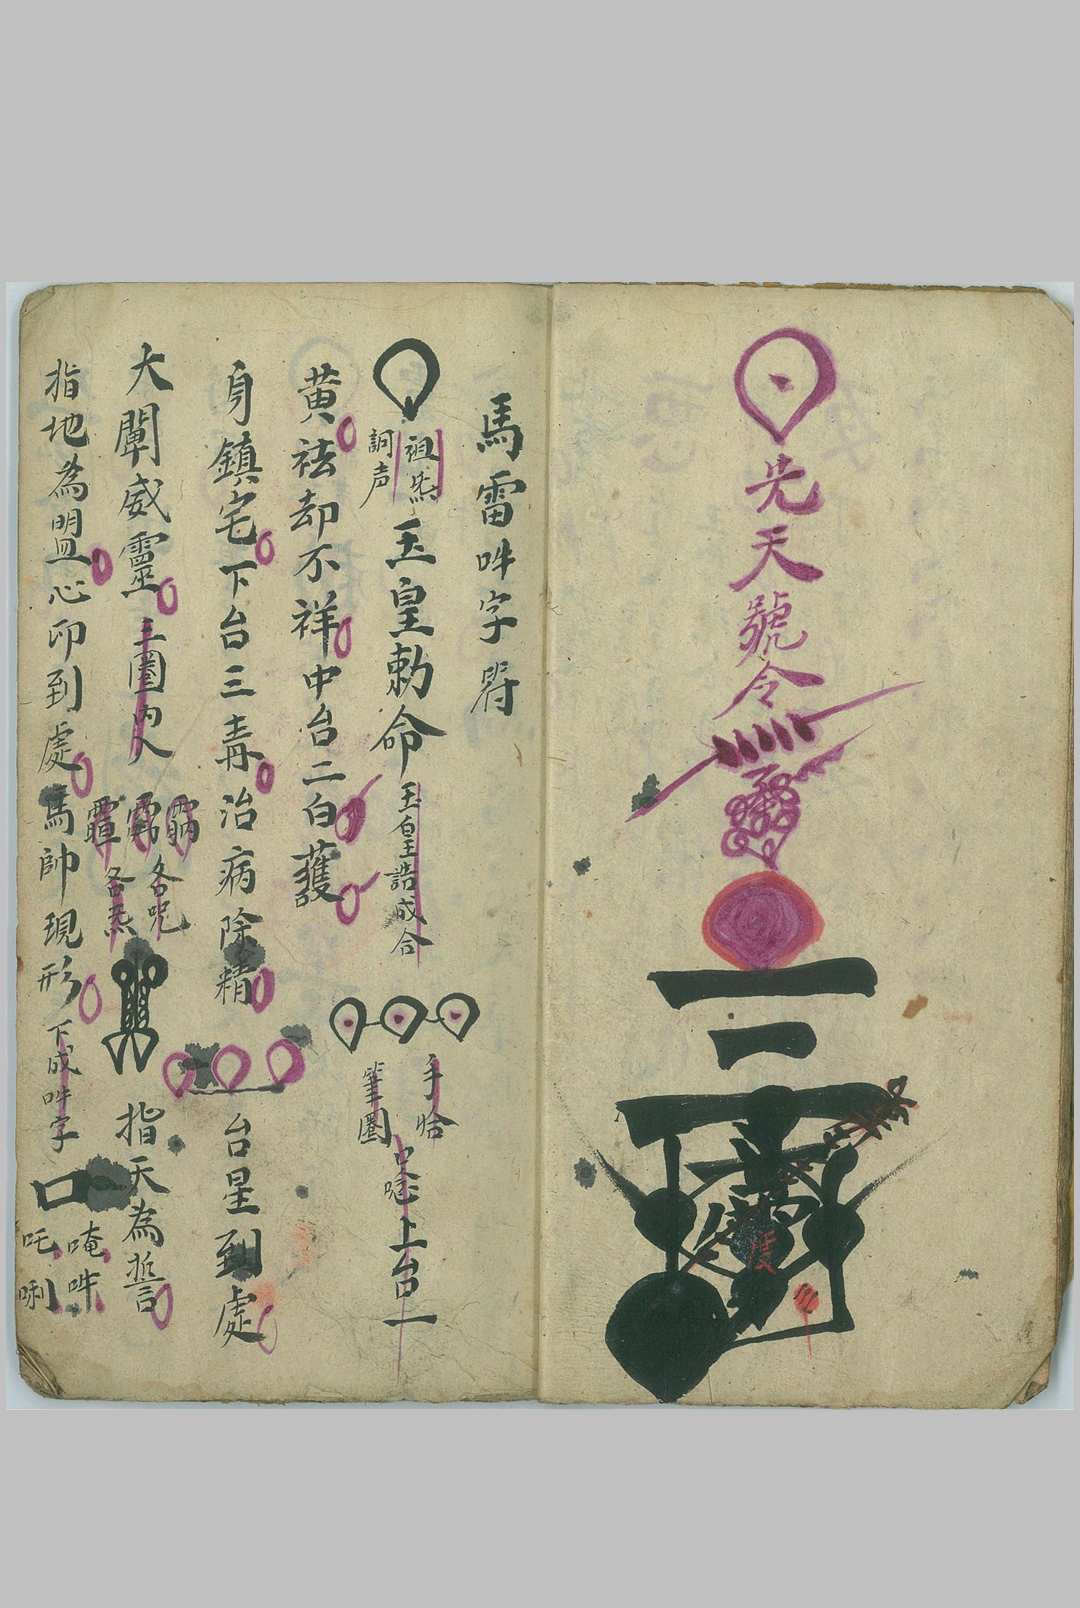 先天號令
三
二
馬雷吽字符
玉皇勅命 玉皇誥成合
祖炁
訶声
手恰
筆圈
口唸 上台一
黄祛却不祥中台二白護
身鎮宅下台三毒治病除精
台星到處
大闡威靈 三圈內人
各呪
各炁
指天為誓
指地為盟心印到處馬帥現形 下成吽字
口
唵吽
吒唎